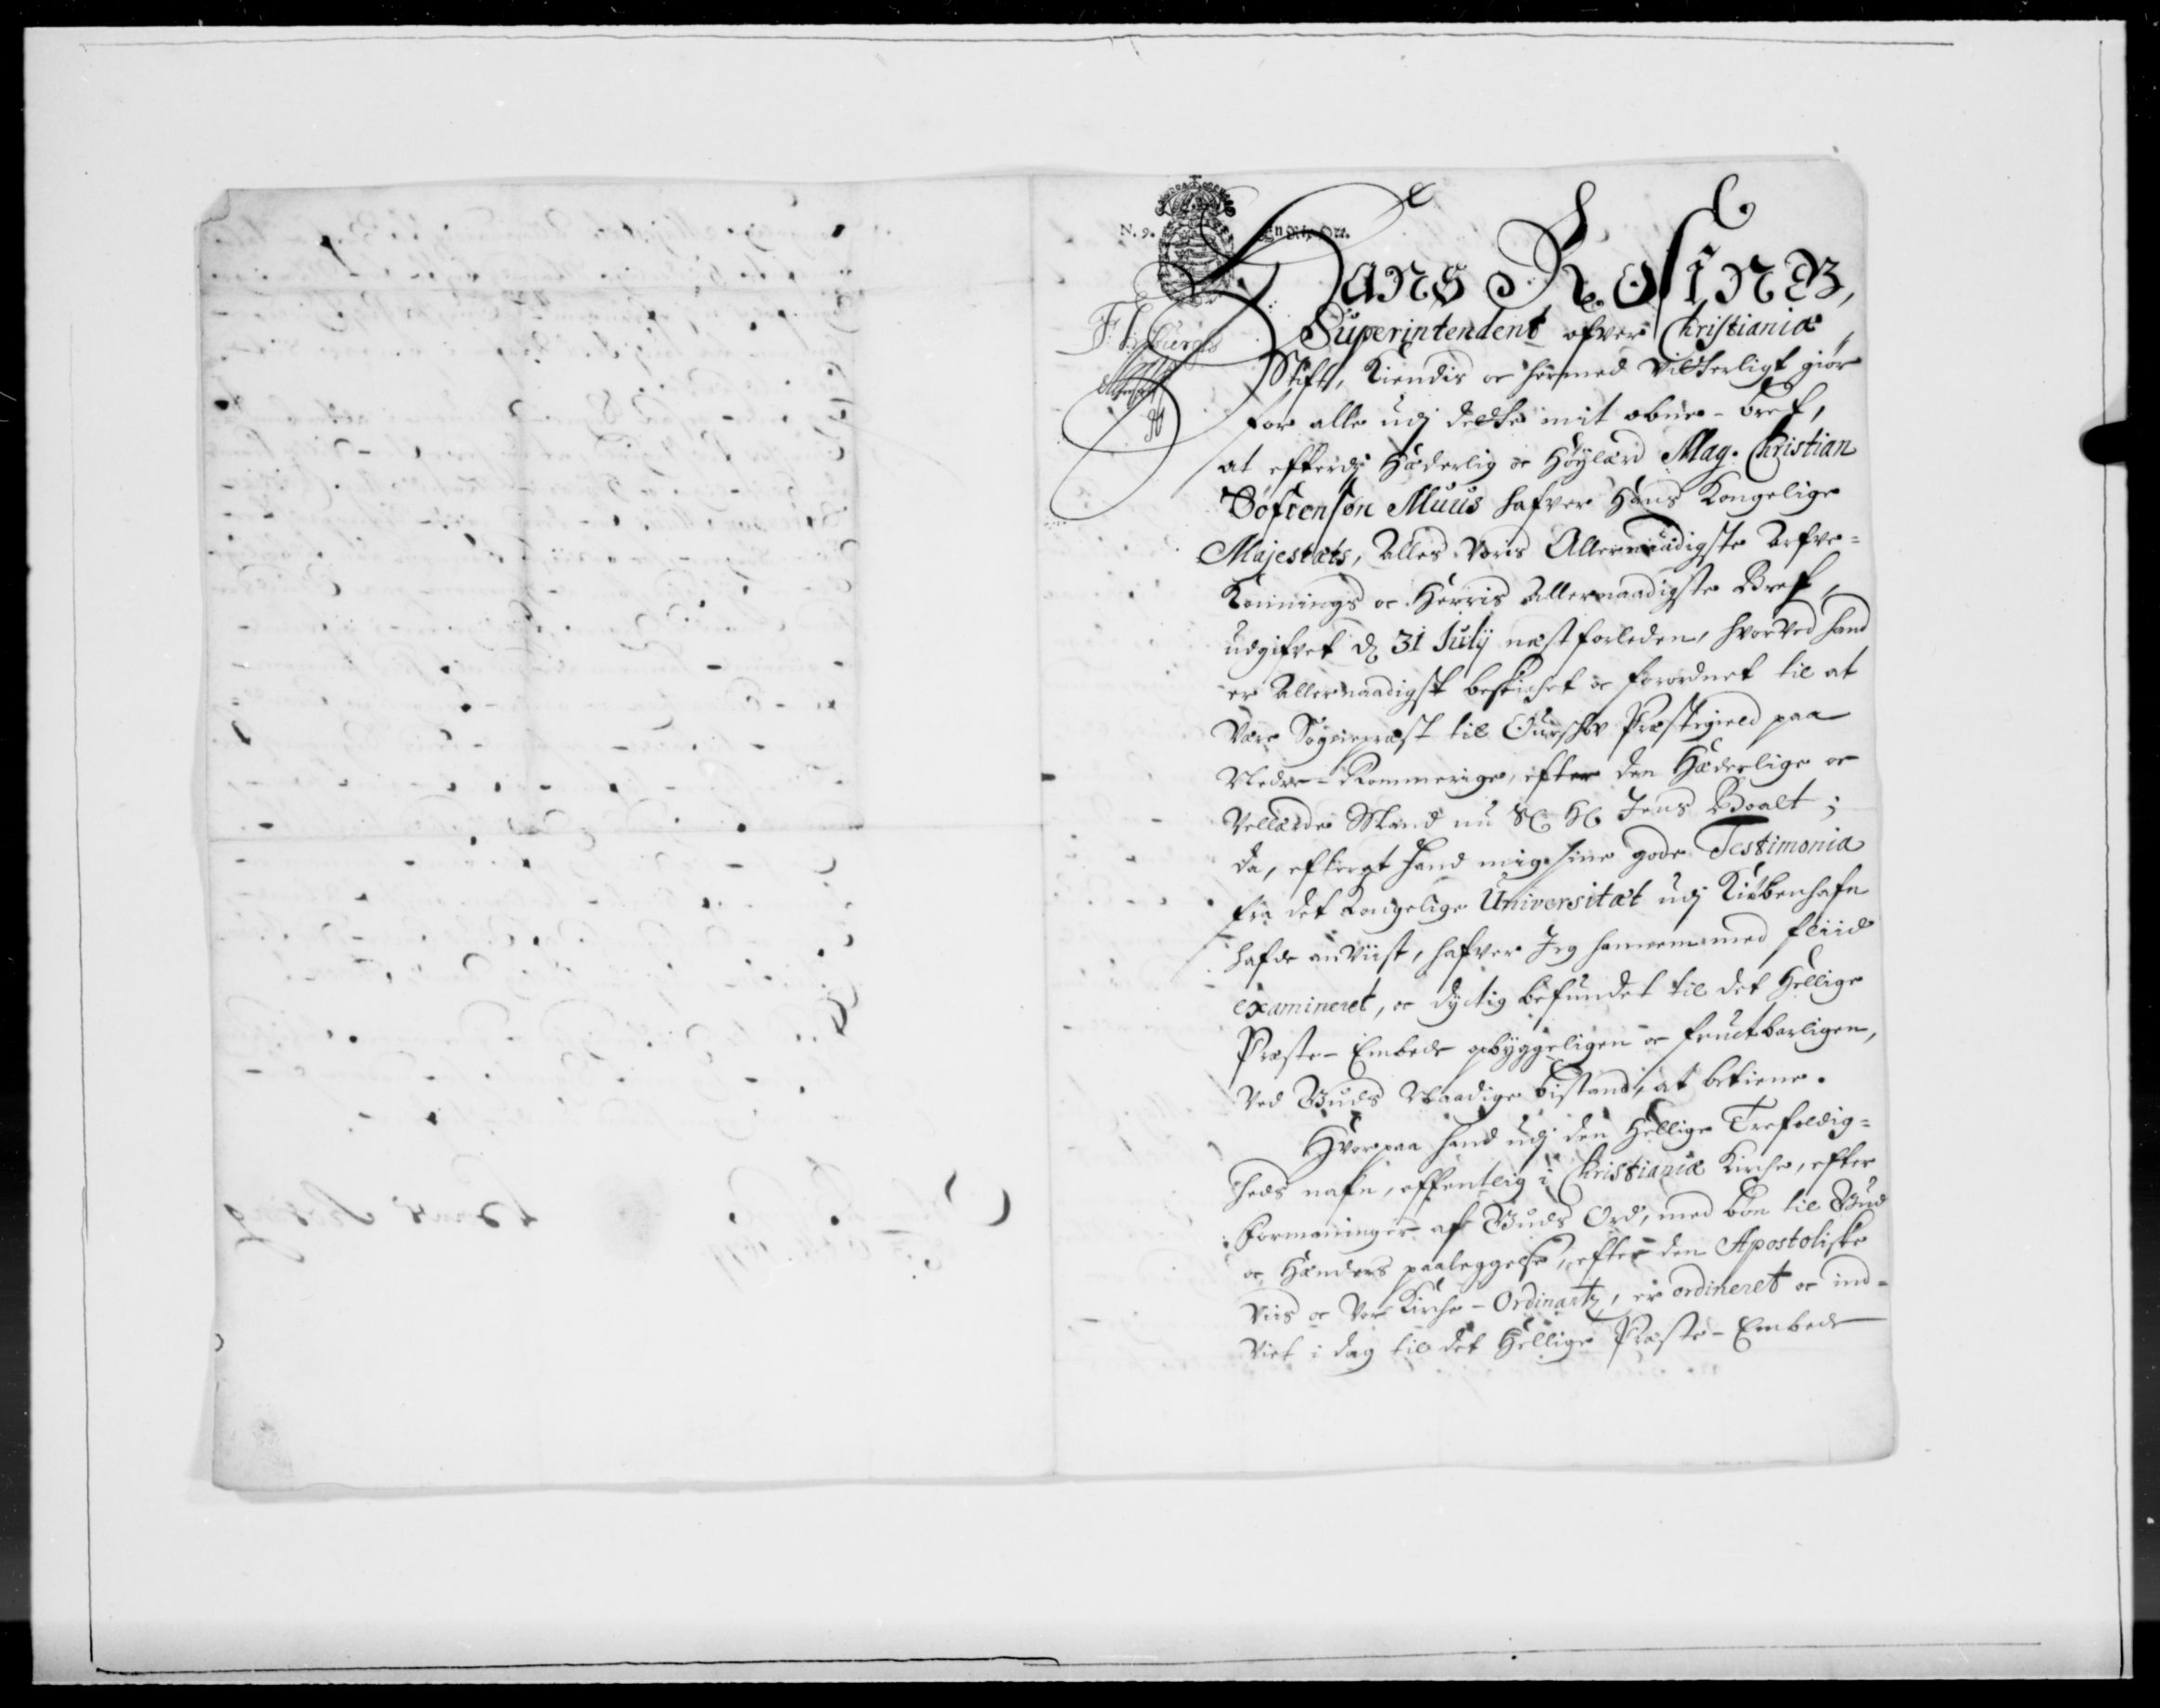 N. 9. En Rix Ort.
Hans Rosing,
Superintendent ofver Christiania
Stift, Kiendis oc hermed Vitterligt giør
for alle udj dette mit obne-bref,
at efterdj Hæderlig oc Høylærd Mag. Christian
Søfrensøn Muus hafver Hans Kongelige
Majestæts, Alles Voris Allernaadigste Arfve-
Konnings oc Herris Allernaadigste Bref,
udgifvet d. 31 Julij næstforleden, hvorved hand
er Allernaadigst beskichet oc forordnet til at
Være Sogneprest til Ourschov Præstegield paa
Neder-Rommerige, efter den Hæderlige oc
Vellærde Mand nu Sl. Hr. Jens Boalt;
da, eftergt hand mig sine gode Testimonia
fra det Kongelige Universitæt udj Kiøbenhafn
hafde anviist, hafver Jeg hannem med fliid
examineret, oc dyctig befundet til det Hellige
Præste-Embede opbyggeligen oc fructbarligen,
Ved Guds Naadige bistand, at betiene.
Hvorpaa hand udj den Hellige Trefoldig-
heds nafn, offentlig i Christiania Kirche, efter
formaninger af Guds Ord, med bøn til Gud
oc Hænders paaleggelse, efter den Apostoliske
Viis oc Vor Kirche-Ordinantz, er ordineret oc ind-
Viet i dag til det Hellige Præste-Embede